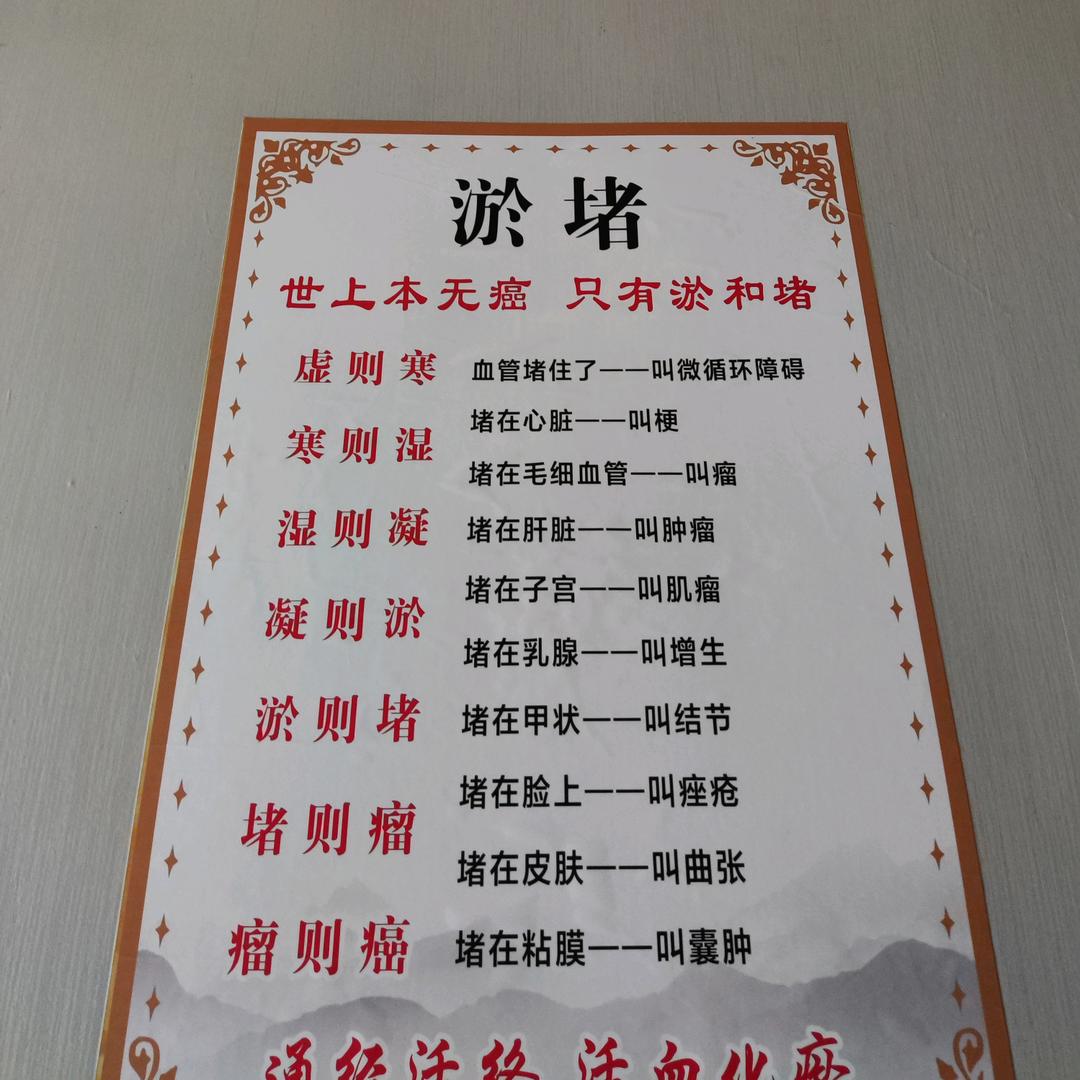 淤堵
世上本无癌 只有淤和堵
虚则寒
寒则湿
湿则凝
凝则淤
淤则堵
堵则瘤
瘤则癌
血管堵住了——叫微循环障碍
堵在心脏——叫梗
堵在毛细血管——叫瘤
堵在肝脏——叫肿瘤
堵在子宫——叫肌瘤
堵在乳腺——叫增生
堵在甲状——叫结节
堵在脸上——叫痤疮
堵在皮肤——叫曲张
堵在粘膜——叫囊肿
通经活络 活血化瘀